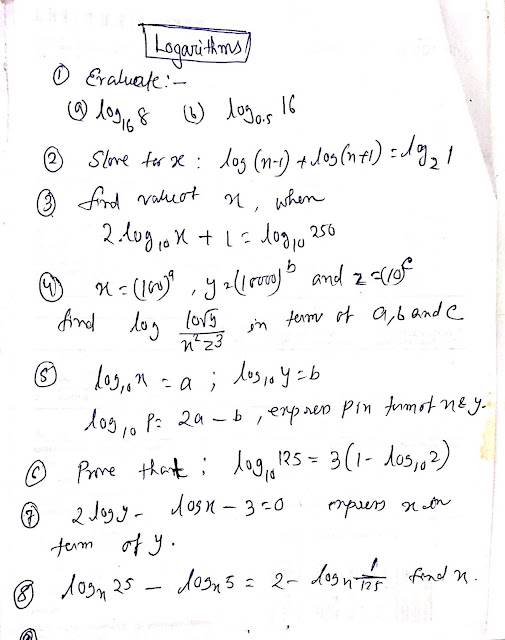 Logarithms
① Evaluate:-
(a) log₁₆ 8 (b) log₀.₅ 16
② Slove for x : log (x-1) + log(x+1) = log₂ 1
③ find value of x, when
2 log₁₀ x + 1 = log₁₀ 250
④ x = (100)ᵃ , y = (10000)ᵇ and z = (10)ᶜ
find log 10√y / x²z³ in term of a, b and c
⑤ log₁₀ x = a ; log₁₀ y = b
log₁₀ P = 2a - b , express P in term of x & y.
⑥ Prove that : log₁₀ 125 = 3(1 - log₁₀ 2)
⑦ 2 log y - log x - 3 = 0 express x in
term of y.
⑧ logₓ 25 - logₓ 5 = 2 - logₓ 1/125 find x.